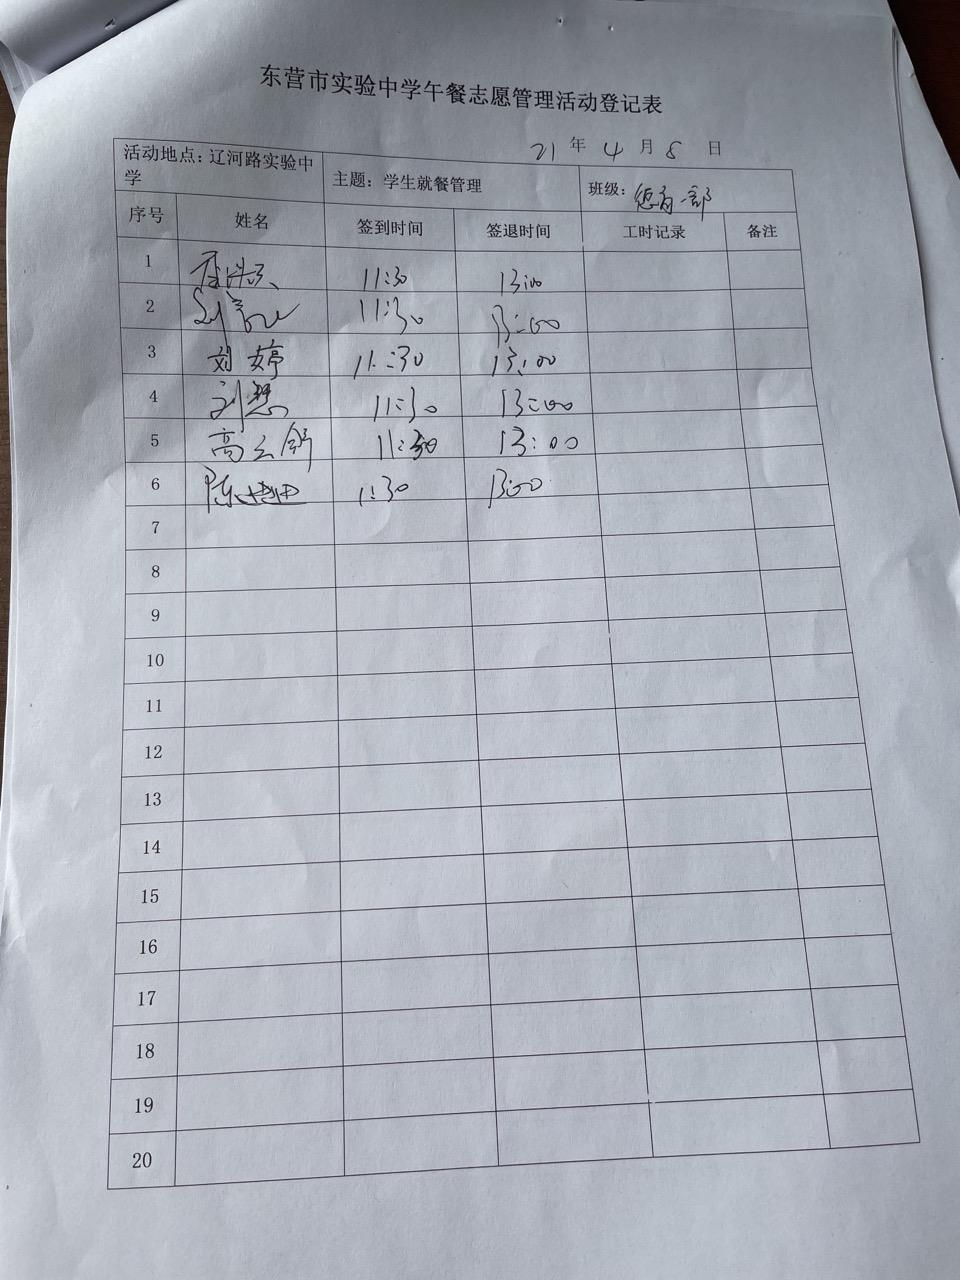 东营市实验中学午餐志愿管理活动登记表
21 年 4 月 8 日
活动地点：辽河路实验中学 主题：学生就餐管理 班级：德育一部
序号 姓名 签到时间 签退时间 工时记录 备注
1 11:30 13:00
2 刘 11:30 13:00
3 刘婷 11:30 13:00
4 刘慧 11:30 13:00
5 高云舒 11:30 13:00
6 陈 11:30 13:00
7
8
9
10
11
12
13
14
15
16
17
18
19
20